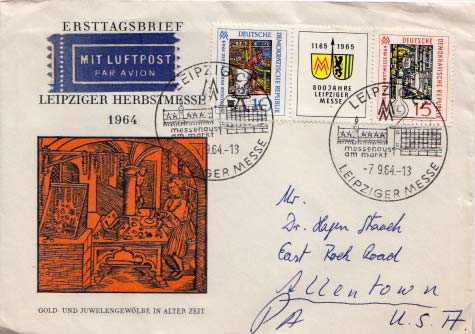 ERSTTAGSBRIEF
MIT LUFTPOST
PAR AVION
LEIPZIGER HERBSTMESSE
1964
DEUTSCHE
DEMOKRATISCHE REPUBLIK
10
1165 1965
800 JAHRE
LEIPZIGER
MESSE
DEUTSCHE
DEMOKRATISCHE REPUBLIK
15
LEIPZIG
messehaus
am markt
-7.9.64.-13
LEIPZIGER MESSE
LEIPZIG
messehaus
am markt
-7.9.64.-13
LEIPZIGER MESSE
Mr.
Dr. Hagen Staack
East Rock Road
Allentown
PA U.S.A.
GOLD- UND JUWELENGEWÖLBE IN ALTER ZEIT